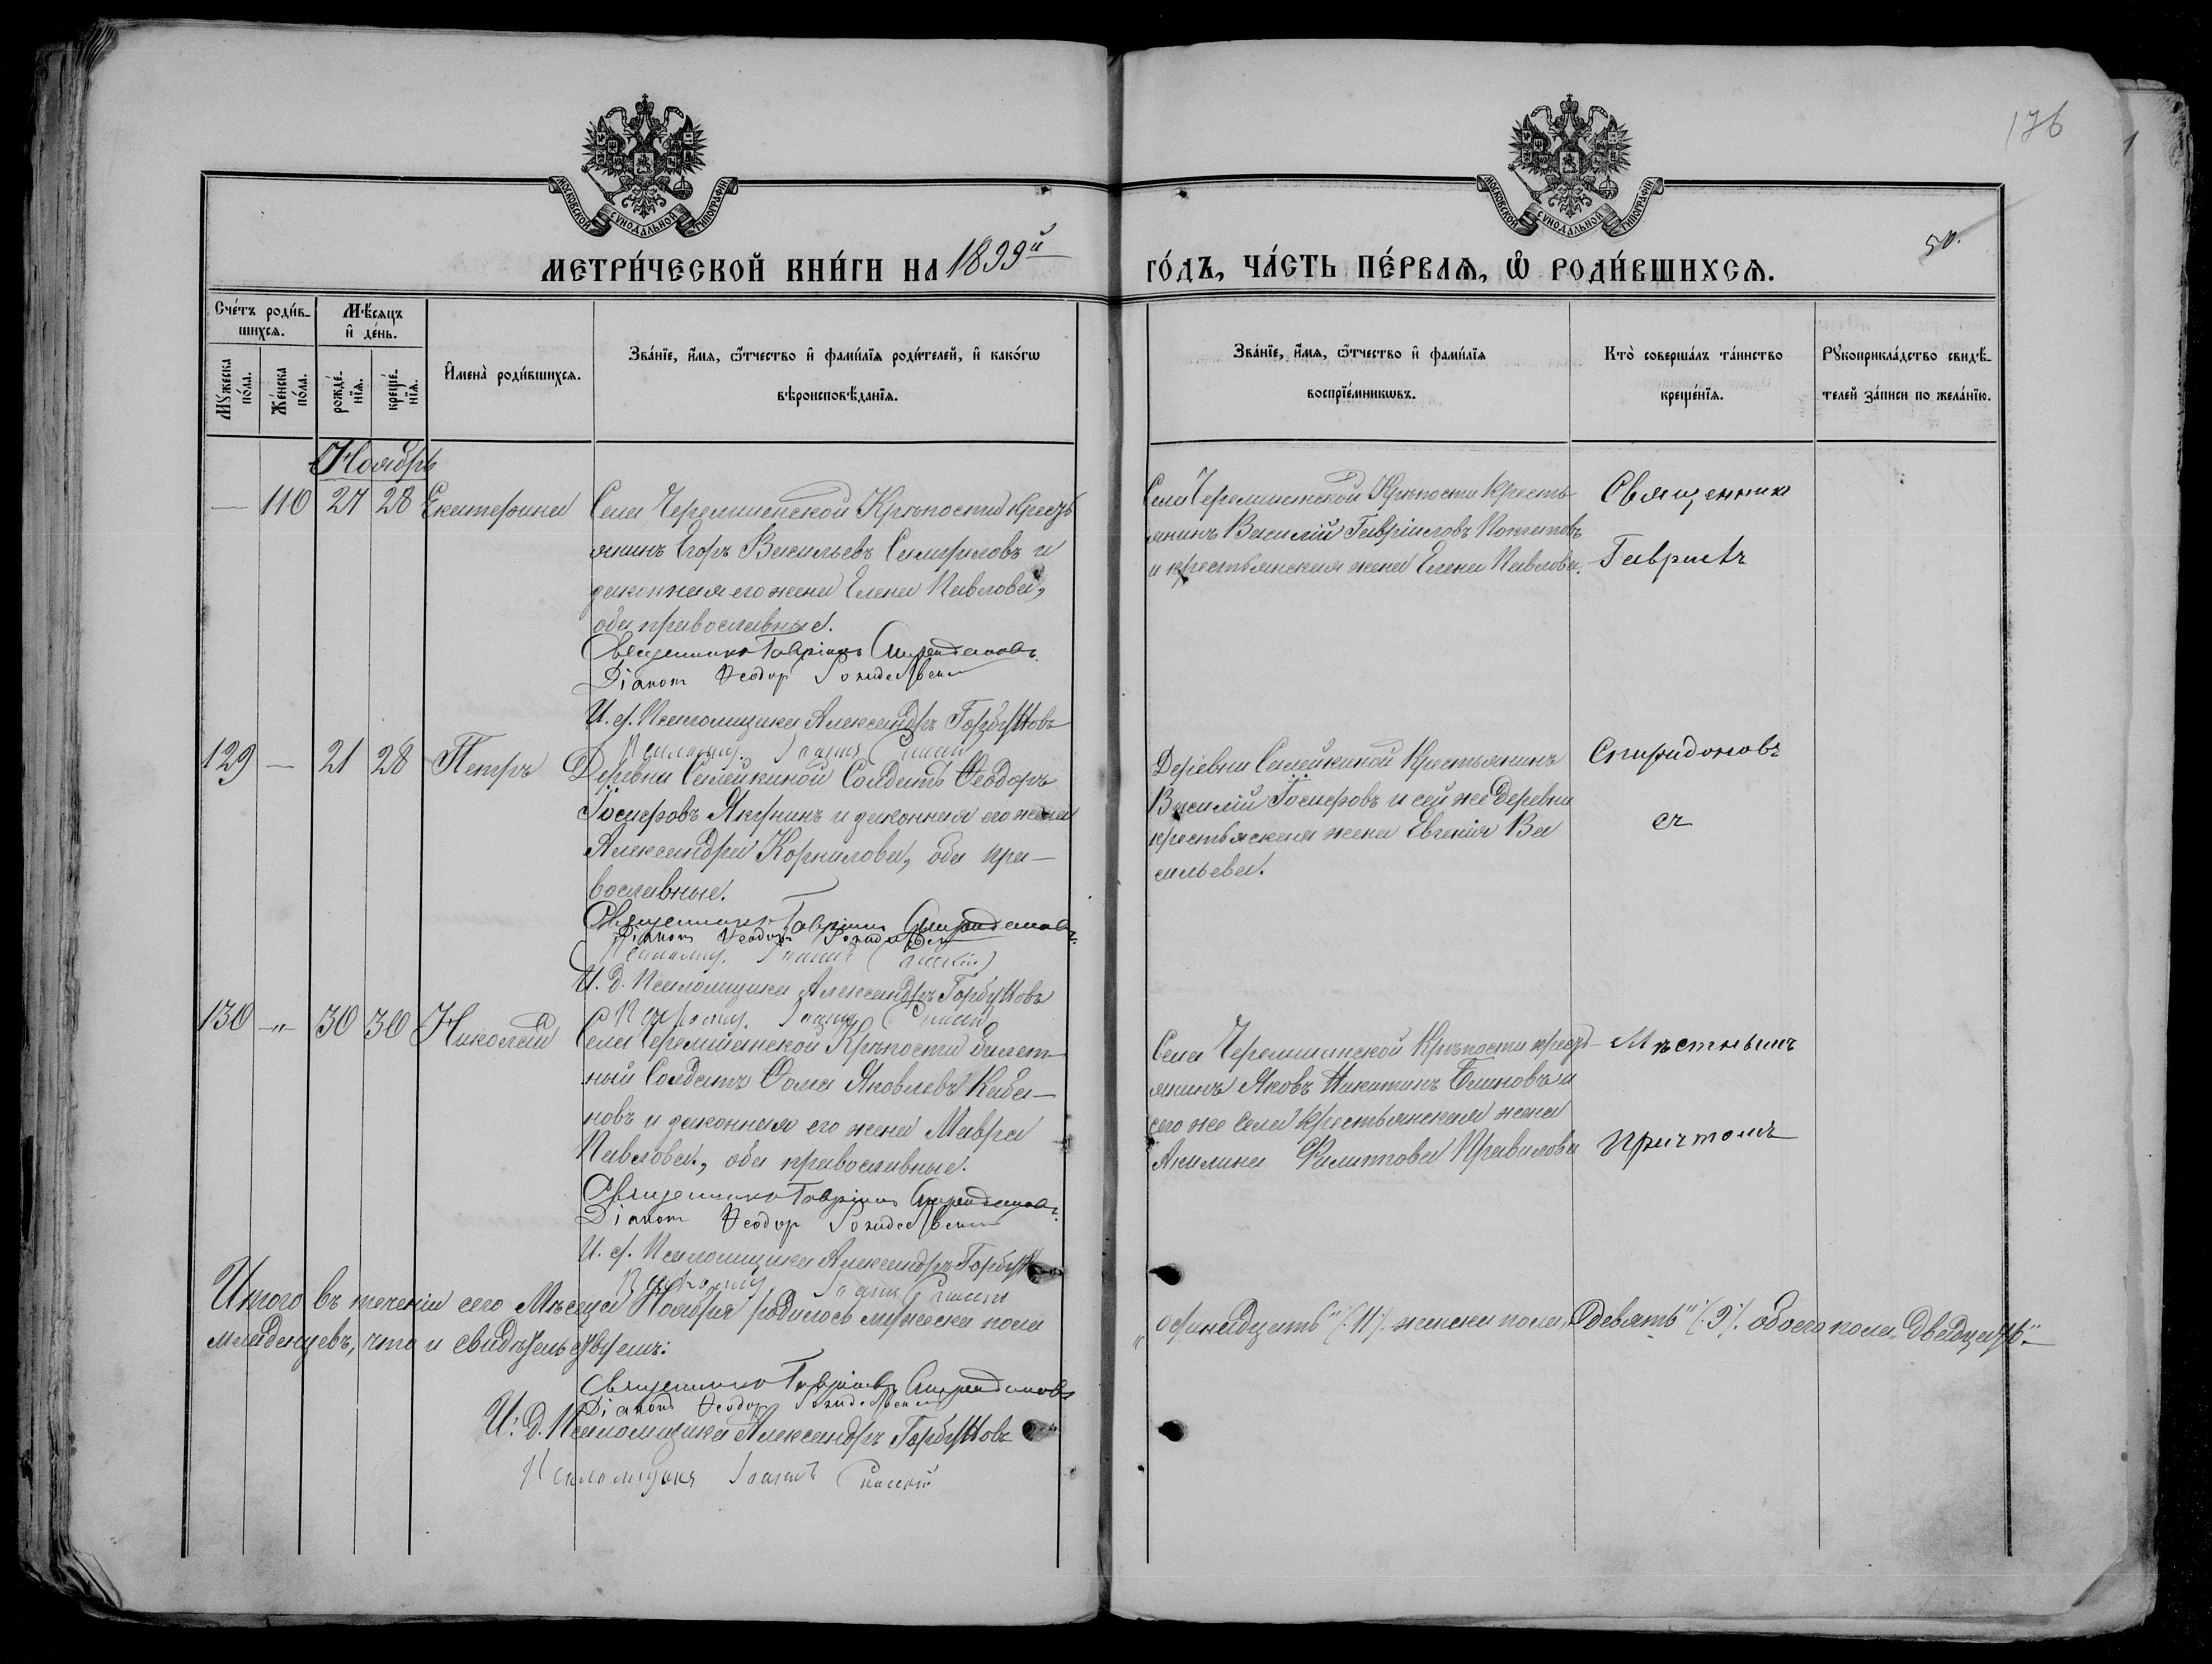 176
МОСКОВСКОЙ СУНОДАЛЬНОЙ ТИПОГРАФІИ
МОСКОВСКОЙ СУНОДАЛЬНОЙ ТИПОГРАФІИ
50.
МЕТРИ́ЧЕСКОЙ КНИ́ГИ НА 1899й
ГО́ДЪ, ЧА́СТЬ ПЕ́РВАѦ, Ѡ РОДИ́ВШИХСѦ.
Сче́тъ роди́в-
шихсѧ.
Мѣ́сѧцъ
и҆ де́нь.
Мꙋ́жеска
по́ла.
Же́нска
по́ла.
рожде́-
нїѧ.
креще́-
нїѧ.
И҆мена̀ роди́вшихсѧ.
Зва́нїе, и҆́мѧ, ѻ҆́тчество и҆ фами́лїѧ роди́телей, и҆ како́гѡ
вѣроисповѣ́данїѧ.
Зва́нїе, и҆́мѧ, ѻ҆́тчество и҆ фами́лїѧ
воспрїе́мникѡвъ.
Кто̀ соверша́лъ та́инство
креще́нїѧ.
Рꙋкоприкла́дство свидѣ́-
телей за́писи по жела́нїю.
Ноябрь
— 110 27 28 Екатерина
Села Черемшанской Крѣпости крест
янинъ Егоръ Васильевъ и
законная его жена Елена Павлова,
оба православные.
Священникъ Гавріилъ Спиридоновъ.
Діаконъ Ѳеодоръ Рождественскій
И. д. Псаломщика Александръ Горбуновъ
Псаломщ. Іоаннъ Спасскій
Села Черемшанской Крѣпости кресть
янинъ Василій Гавріиловъ
и крестьянская жена Елена Павлова.
Священник
Гавріилъ
129 — 21 28 Петръ
Деревни Семейкиной Солдатъ Ѳеодоръ
Іосифовъ Якунинъ и законная его жена
Александра Корнилова, оба пра-
вославные.
Священникъ Гавріилъ Спиридоновъ.
Діаконъ Ѳеодоръ Рождественскій
Псаломщ. Іоаннъ Спасскій
И. д. Псаломщика Александръ Горбуновъ
Псаломщ. Іоаннъ Спасскій
Деревни Семейкиной Крестьянинъ
Василій Іосифовъ и сей же деревни
крестьяская жена Евгенія Ва
сильева.
Спиридоновъ
съ
130 -„- 30 30 Николай
Села Черемшанской Крѣпости билет-
ный Солдатъ Ѳома Яковлевъ Каба-
новъ и законная его жена Мавра
Павлова, оба православные.
Священникъ Гавріилъ Спиридоновъ.
Діаконъ Ѳеодоръ Рождественскій
И. д. Псаломщика Александръ Горбуновъ
Псаломщ. Іоаннъ Спасскій
Села Черемшанской Крѣпости крест-
янинъ Яковъ Никитинъ Блиновъ и
сего же села крестьянская жена
Акилина Филиппова
Мѣстнымъ
причтомъ
Итого въ теченіи сего Мѣсяца Ноября родилось мужеска пола
„одинадцать" (:11:) женска пола „девять" (:9:). обоего пола „двадцать"—
младенцевъ, что и свидѣтельствуемъ:
Священникъ Гавріилъ Спиридоновъ
Діаконъ Ѳеодоръ Рождественскій
И. д. Псаломщика Александръ Горбуновъ
Псаломщикъ Іоаннъ Спасскій